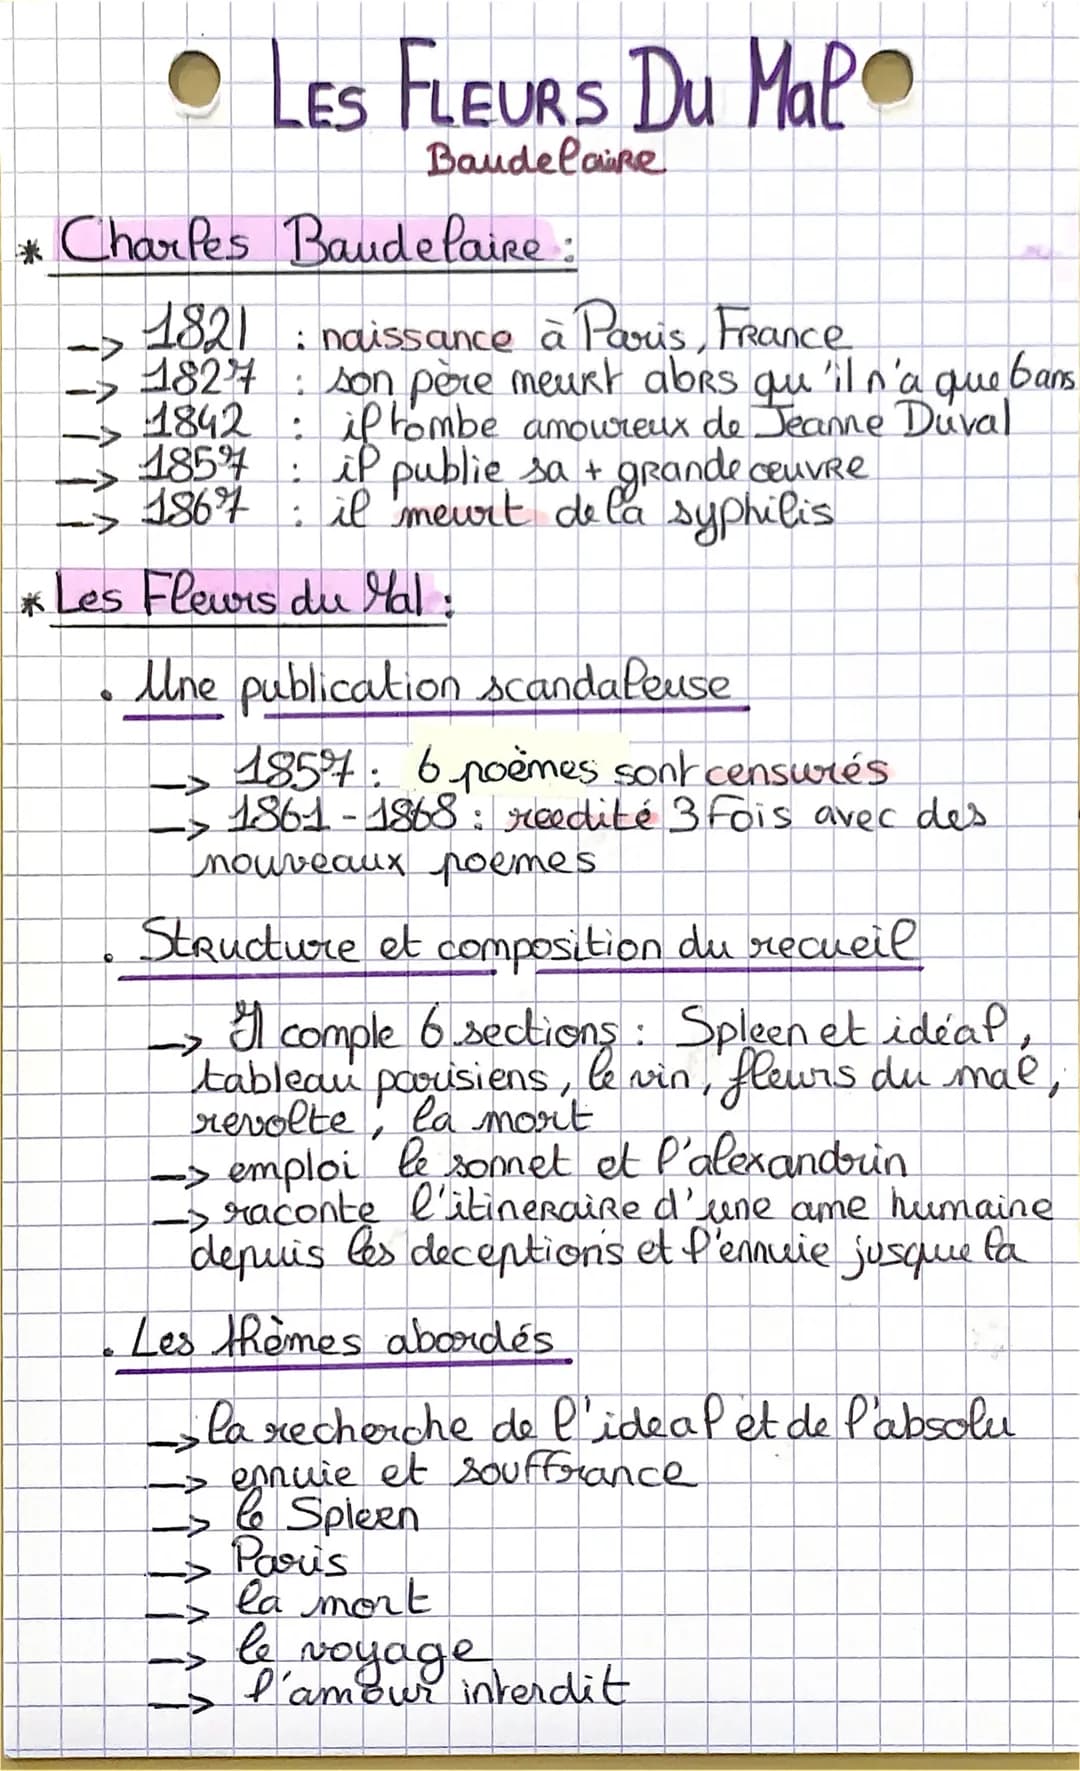 LES FLEURS DU Mal
Baudelaire
* Charles Baudelaire :
-> 1821 : naissance à Paris, France
-> 1827 : son père meurt alors qu'il n'a que 6 ans
-> 1842 : il tombe amoureux de Jeanne Duval
-> 1857 : il publie sa + grande œuvre
-> 1867 : il meurt de la syphilis
* Les Fleurs du Mal :
. Une publication scandaleuse
-> 1857 : 6 poèmes sont censurés
-> 1861 - 1868 : reedité 3 fois avec des
nouveaux poemes
. Structure et composition du recueil
-> Il comple 6 sections : Spleen et idéal,
tableau parisiens, le vin, fleurs du mal,
revolte, la mort
-> emploi le sonnet et l'alexandrin
-> raconte l'itineraire d'une ame humaine
depuis les deceptions et l'ennuie jusque la
. Les thèmes abordés
-> la recherche de l'ideal et de l'absolu
-> ennuie et souffrance
-> le Spleen
-> Paris
-> la mort
-> le voyage
-> l'amour interdit